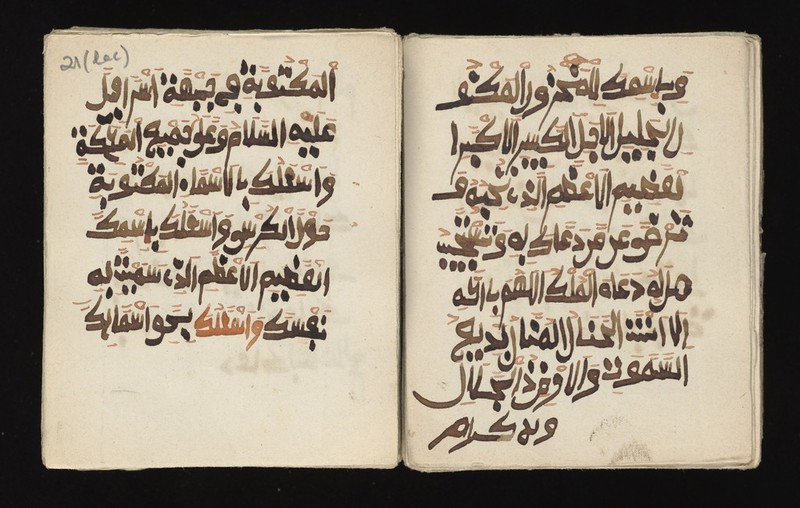 وباسمك المخزون المكنو
ن الجليل الاجل الكبير الاكبر ا
لعظيم الاعظم الذي تحبه و
ترضى عن من دعاك به وتستجيب
له دعاه اللهم
الا انت الحنان المنان بديع
السموت والارض ذا الجلال
والاكرام
21 (rec)
المكتوبة في جبهة اسرافيل
عليه السلام وعلى جميع الملئكة
واسئلك بالاسماء المكتوبة
حول الكرسي واسئلك باسمك
العظيم الاعظم الذي سميت به
نفسك واسئلك بحق اسمائك